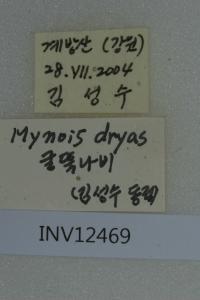 계방산 (강원)
28.VII.2004
김성수
Mynois dryas
굴뚝나비
(김성수 동정)
INV12469